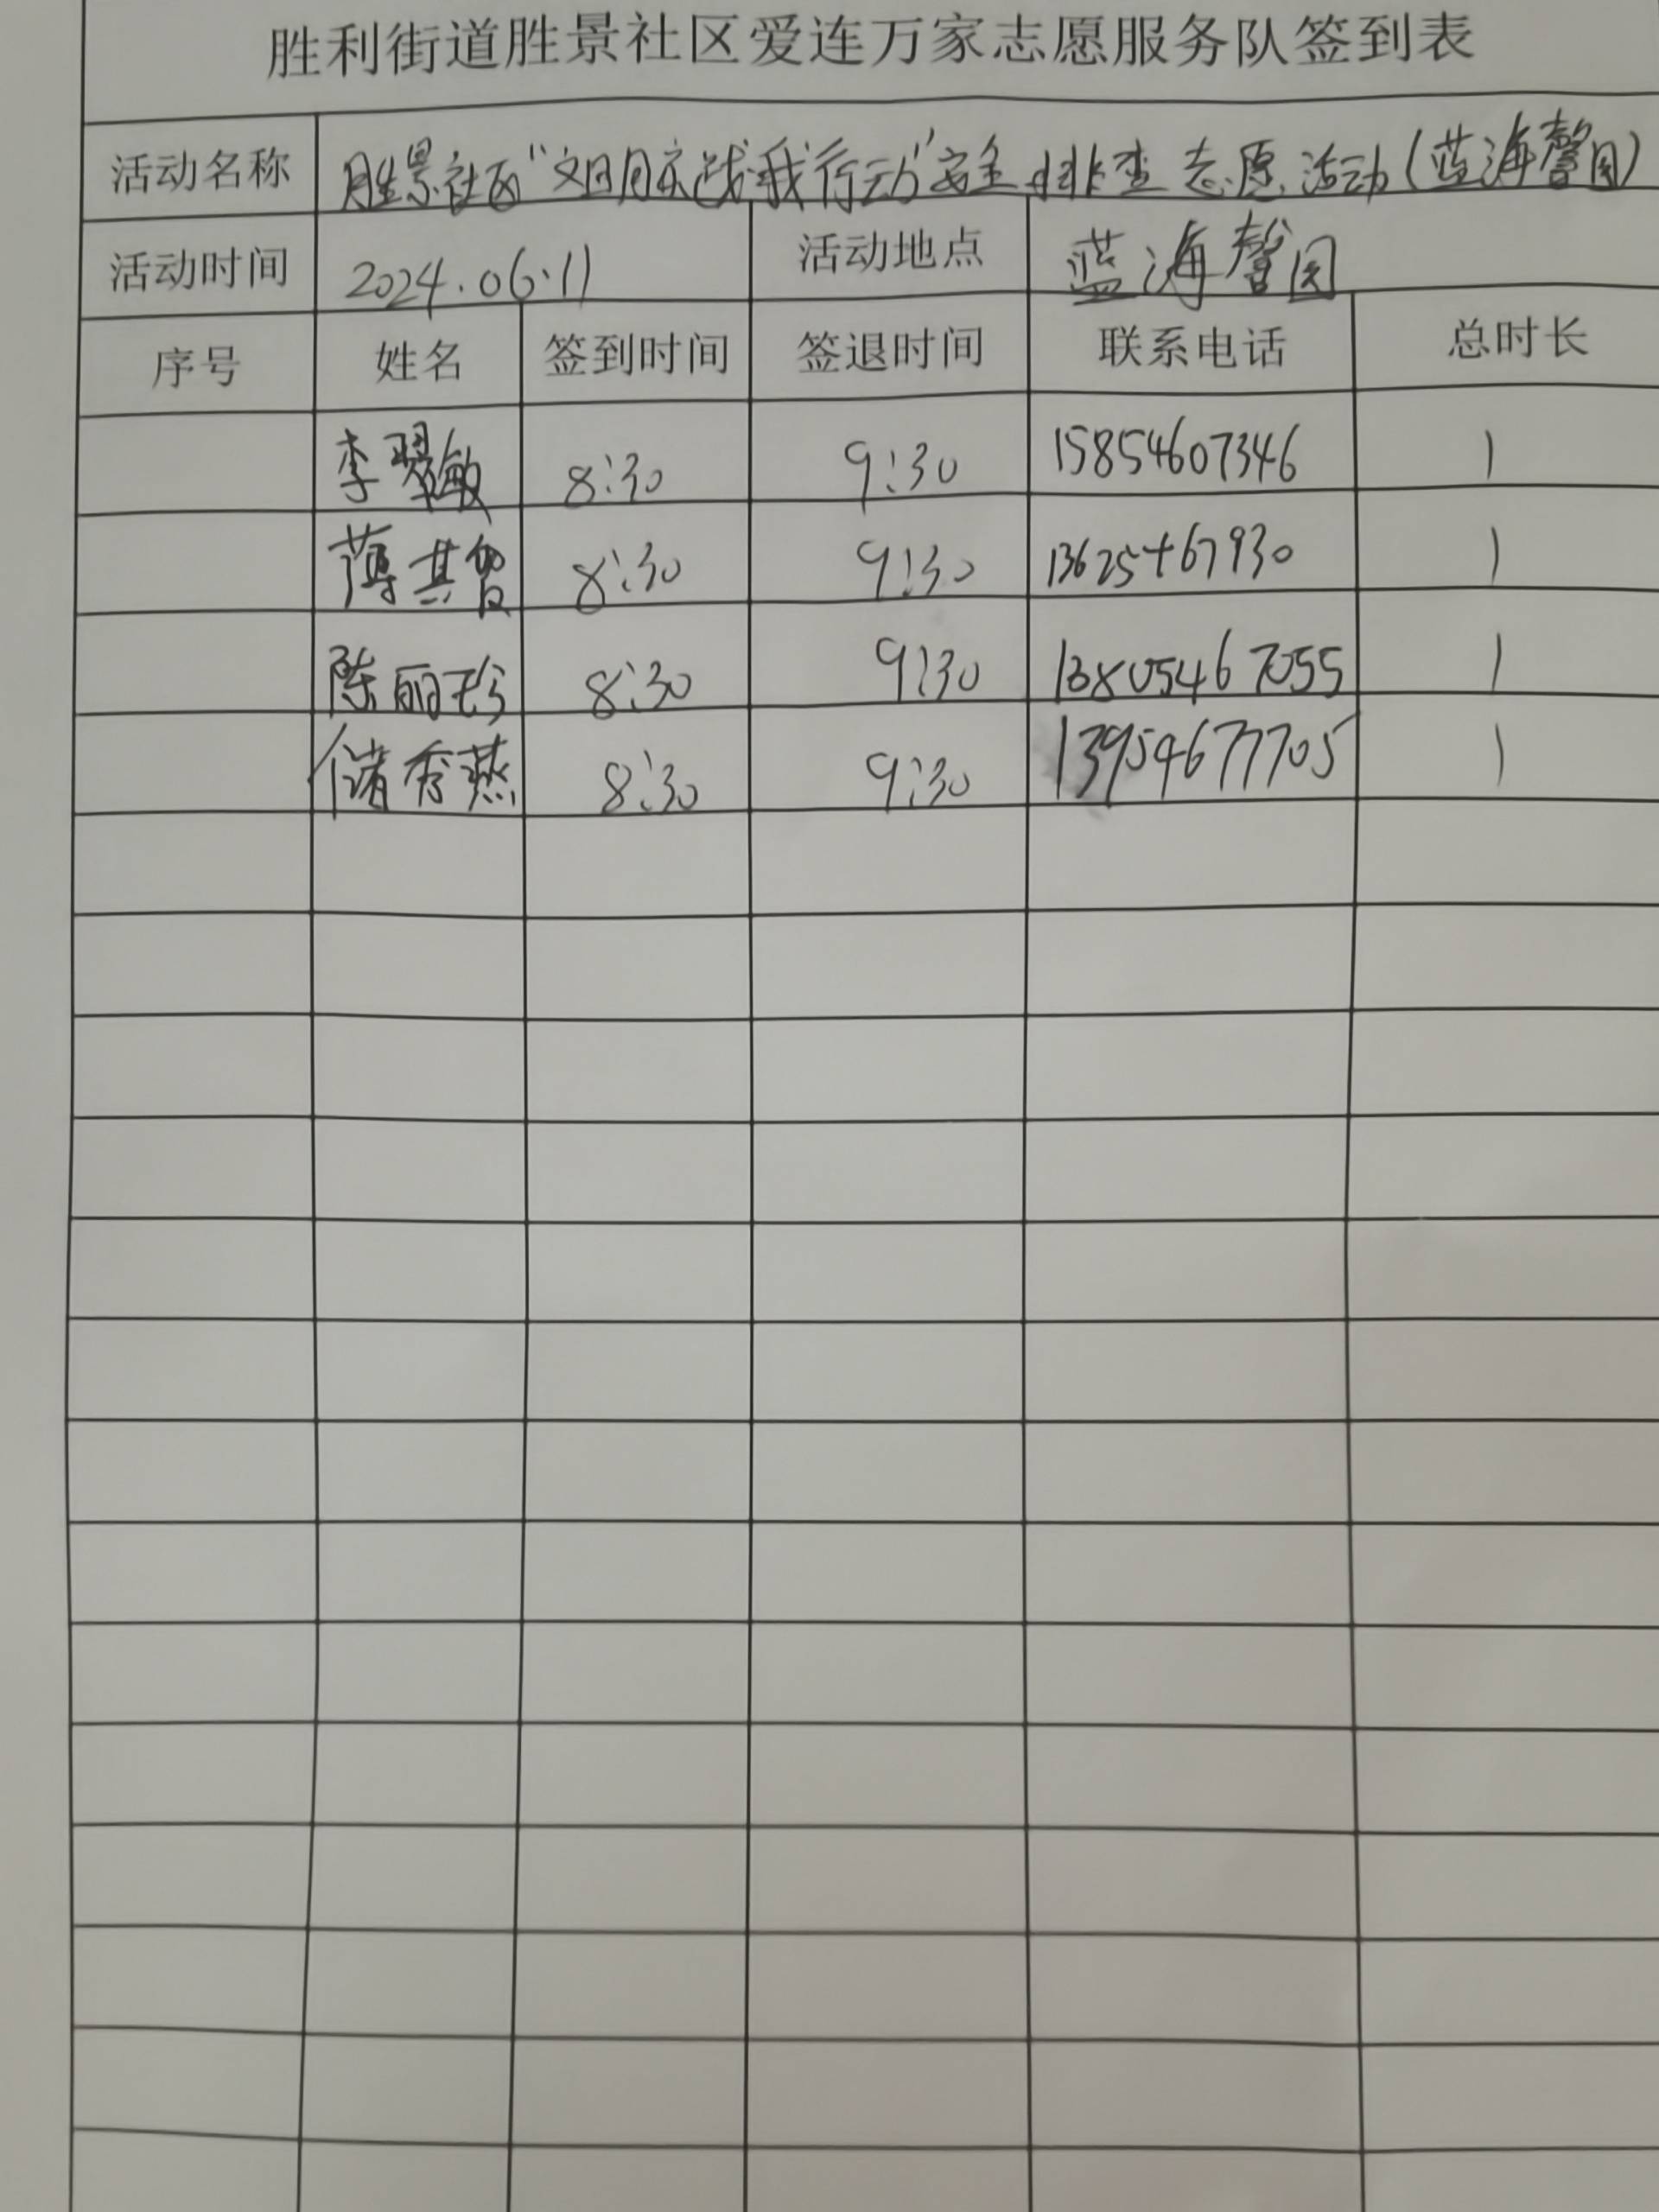 胜利街道胜景社区爱连万家志愿服务队签到表
活动名称 胜景社区“文明东城我行动”安全排查志愿活动(蓝海馨园)
活动时间 2024.06.11 活动地点 蓝海馨园
序号 姓名 签到时间 签退时间 联系电话 总时长
李翠敏 8:30 9:30 15854607346 1
薄其 8:30 9:30 13625467930 1
陈丽珍 8:30 9:30 13805467055 1
储秀燕 8:30 9:30 13954677705 1